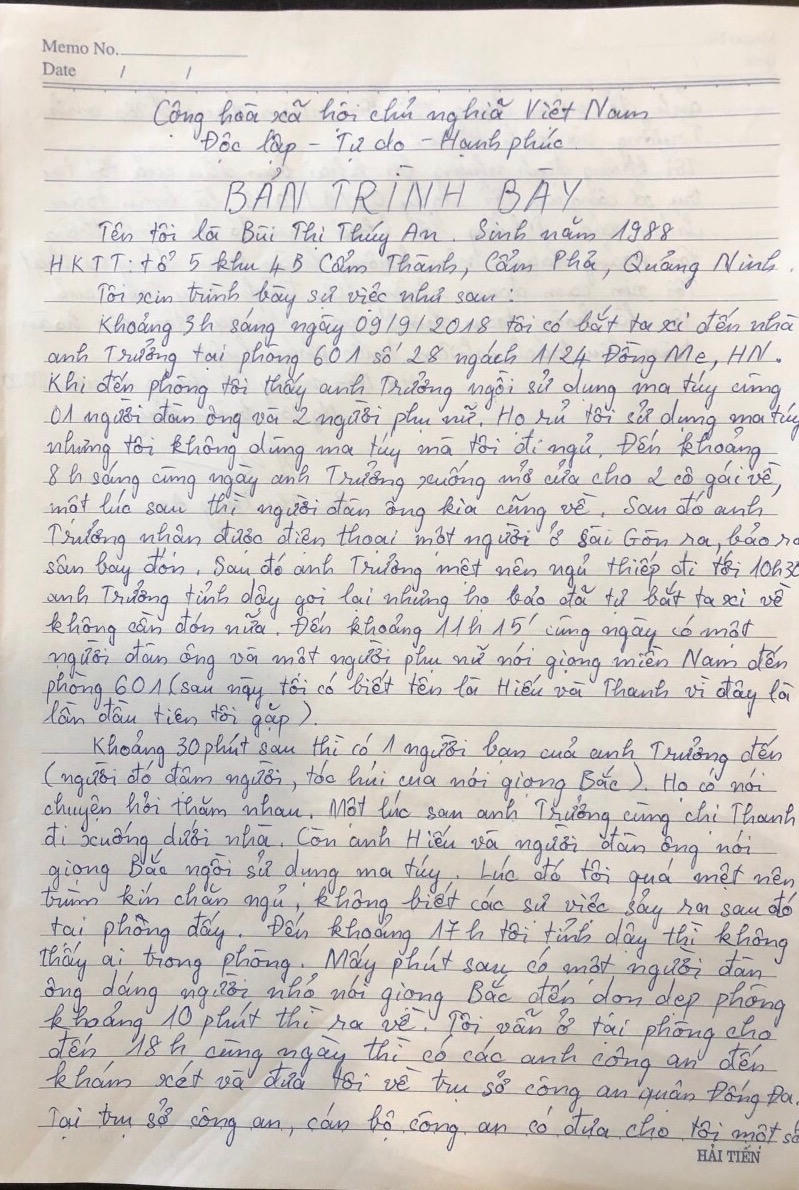 Memo No.
Date / /
Cộng hòa xã hội chủ nghĩa Việt Nam
Độc lập - Tự do - Hạnh phúc
BẢN TRÌNH BÀY
Tên tôi là Bùi Thị Thúy An. Sinh năm 1988
HKTT: tổ 5 khu 4B Cẩm Thành, Cẩm Phả, Quảng Ninh.
Tôi xin trình bày sự việc như sau:
Khoảng 3h sáng ngày 09/9/2018 tôi có bắt ta xi đến nhà
anh Trưởng tại phòng 601 số 28 ngách 1/24 Đồng Me, HN.
Khi đến phòng tôi thấy anh Trưởng ngồi sử dụng ma túy cùng
01 người đàn ông và 2 người phụ nữ. Họ rủ tôi sử dụng ma túy
nhưng tôi không dùng ma túy mà tôi đi ngủ. Đến khoảng
8h sáng cùng ngày anh Trưởng xuống mở cửa cho 2 cô gái về,
một lúc sau thì người đàn ông kia cũng về. Sau đó anh
Trưởng nhận được điện thoại một người ở Sài Gòn ra, bảo ra
sân bay đón. Sau đó anh Trưởng mệt nên ngủ thiếp đi tới 10h30
anh Trưởng tỉnh dậy gọi lại nhưng họ bảo đã tự bắt ta xi về
không cần đón nữa. Đến khoảng 11h 15' cùng ngày có một
người đàn ông và một người phụ nữ nói giọng miền Nam đến
phòng 601 (sau này tôi có biết tên là Hiếu và Thanh vì đây là
lần đầu tiên tôi gặp).
Khoảng 30 phút sau thì có 1 người bạn của anh Trưởng đến
(người đó đậm người, tóc húi cua nói giọng Bắc). Họ có nói
chuyện hỏi thăm nhau. Một lúc sau anh Trưởng cùng chị Thanh
đi xuống dưới nhà. Còn anh Hiếu và người đàn ông nói
giọng Bắc ngồi sử dụng ma túy. Lúc đó tôi quá mệt nên
trùm kín chăn ngủ, không biết các sự việc sảy ra sau đó
tại phòng đấy. Đến khoảng 17h tôi tỉnh dậy thì không
thấy ai trong phòng. Mấy phút sau có một người đàn
ông dáng người nhỏ nói giọng Bắc đến dọn dẹp phòng
khoảng 10 phút thì ra về. Tôi vẫn ở tại phòng cho
đến 18h cùng ngày thì có các anh công an đến
khám xét và đưa tôi về trụ sở công an quận Đống Đa.
Tại trụ sở công an, cán bộ công an có đưa cho tôi một số
HẢI TIẾN